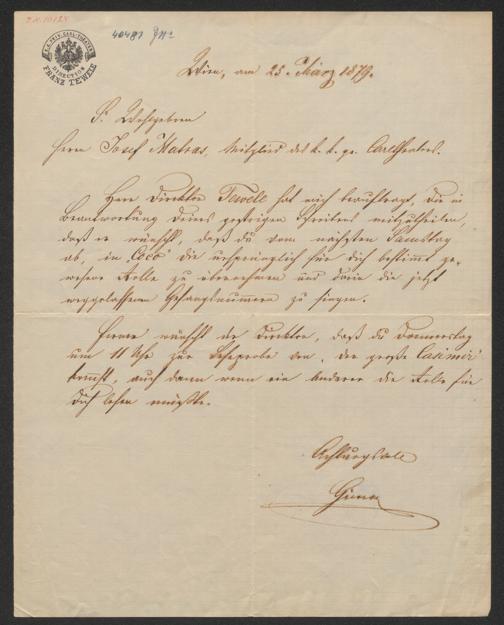 Z.N. 10128
40481 JN
K.K. PRIV. CARL-THEATER
DIRECTION
FRANZ TEWELE
Wien, am 25. März 1879.
S. Wohlgeboren
Herrn Josef Matras, Mitglied des k. k. pr. Carltheaters.
Herr Direktor Tewele hat mich beauftragt, dir in
Beantwortung deines gestrigen Schreibens mitzutheilen,
daß er wünscht, daß du vom nächsten Samstag
ab, in Coco die ursprünglich für dich bestimmt ge-
wesene Rolle zu übernehmen und darin die jetzt
weggelassenen Gesangsnummern zu singen.
Ferner wünscht der Direktor, daß du Donnerstag
um 11 Uhr zur Leseprobe von „der große Casimir“
kommst, auch dann wenn ein Anderer die Rolle für
dich lesen müßte.
Achtungsvoll